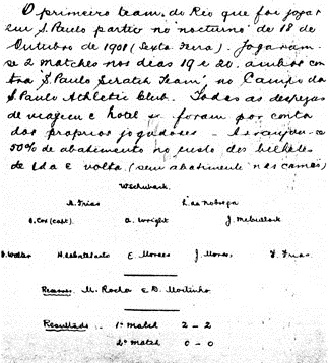 O primeiro team do Rio que foi jogar
em S. Paulo partio no nocturno de 18 de
Outubro de 1901 (Sexta feira). Jogaram-
se 2 matches nos dias 19 e 20, ambos con
tra S. Paulo Scratch Team, no Campo do
S. Paulo Athletic Club. Todas as despezas
de viagem e hotel foram por conta
dos proprios jogadores - Arranjou-se
50% de abatimento no custo dos bilhetes
de Ida e volta (sem abatimento nas camas)
W Schuback
M. Frias L. da Nobrega
O. Cox (capt). A. Wright J. McCulloch
F. Walter H. E. Moraes J. Moraes F. Frias
Reserves M. Rocha e D. Moitinho
Resultado: 1º match 2 = 2
2º match 0 - 0